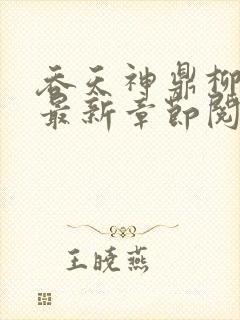 吞天神鼎柳
最新章节阅
王晓燕